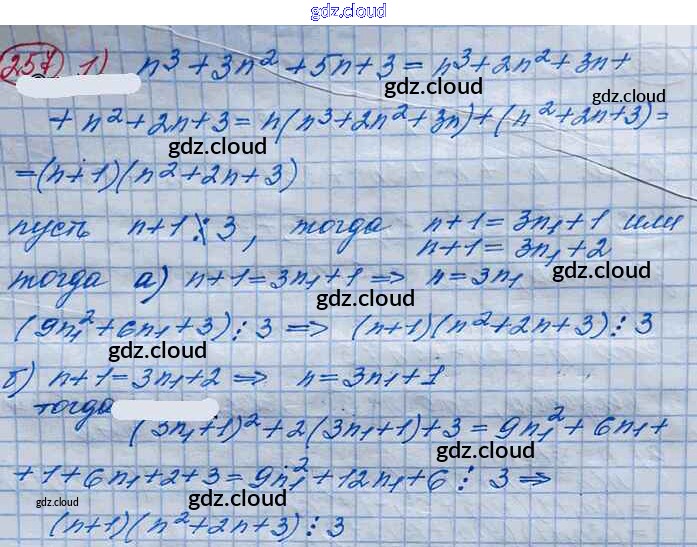 gdz.cloud
257) 1) n³ + 3n² + 5n + 3 = n³ + 2n² + 3n +
gdz.cloud
gdz.cloud
+ n² + 2n + 3 = n(n³ + 2n² + 3n) + (n² + 2n + 3) =
gdz.cloud
= (n + 1)(n² + 2n + 3)
gdz.cloud
пусть n+1 ⋮̸ 3, тогда n+1 = 3n₁ + 1 или
n+1 = 3n₁ + 2
gdz.cloud
тогда а) n+1 = 3n₁ + 1 => n = 3n₁
gdz.cloud
(9n₁² + 6n₁ + 3) ⋮ 3 => (n+1)(n² + 2n + 3) ⋮ 3
gdz.cloud
б) n+1 = 3n₁ + 2 => n = 3n₁ + 1
тогда
gdz.cloud
(3n₁ + 1)² + 2(3n₁ + 1) + 3 = 9n₁² + 6n₁ +
gdz.cloud
+ 1 + 6n₁ + 2 + 3 = 9n₁² + 12n₁ + 6 ⋮ 3 =>
gdz.cloud
gdz.cloud
gdz.cloud
(n+1)(n² + 2n + 3) ⋮ 3
gdz.cloud